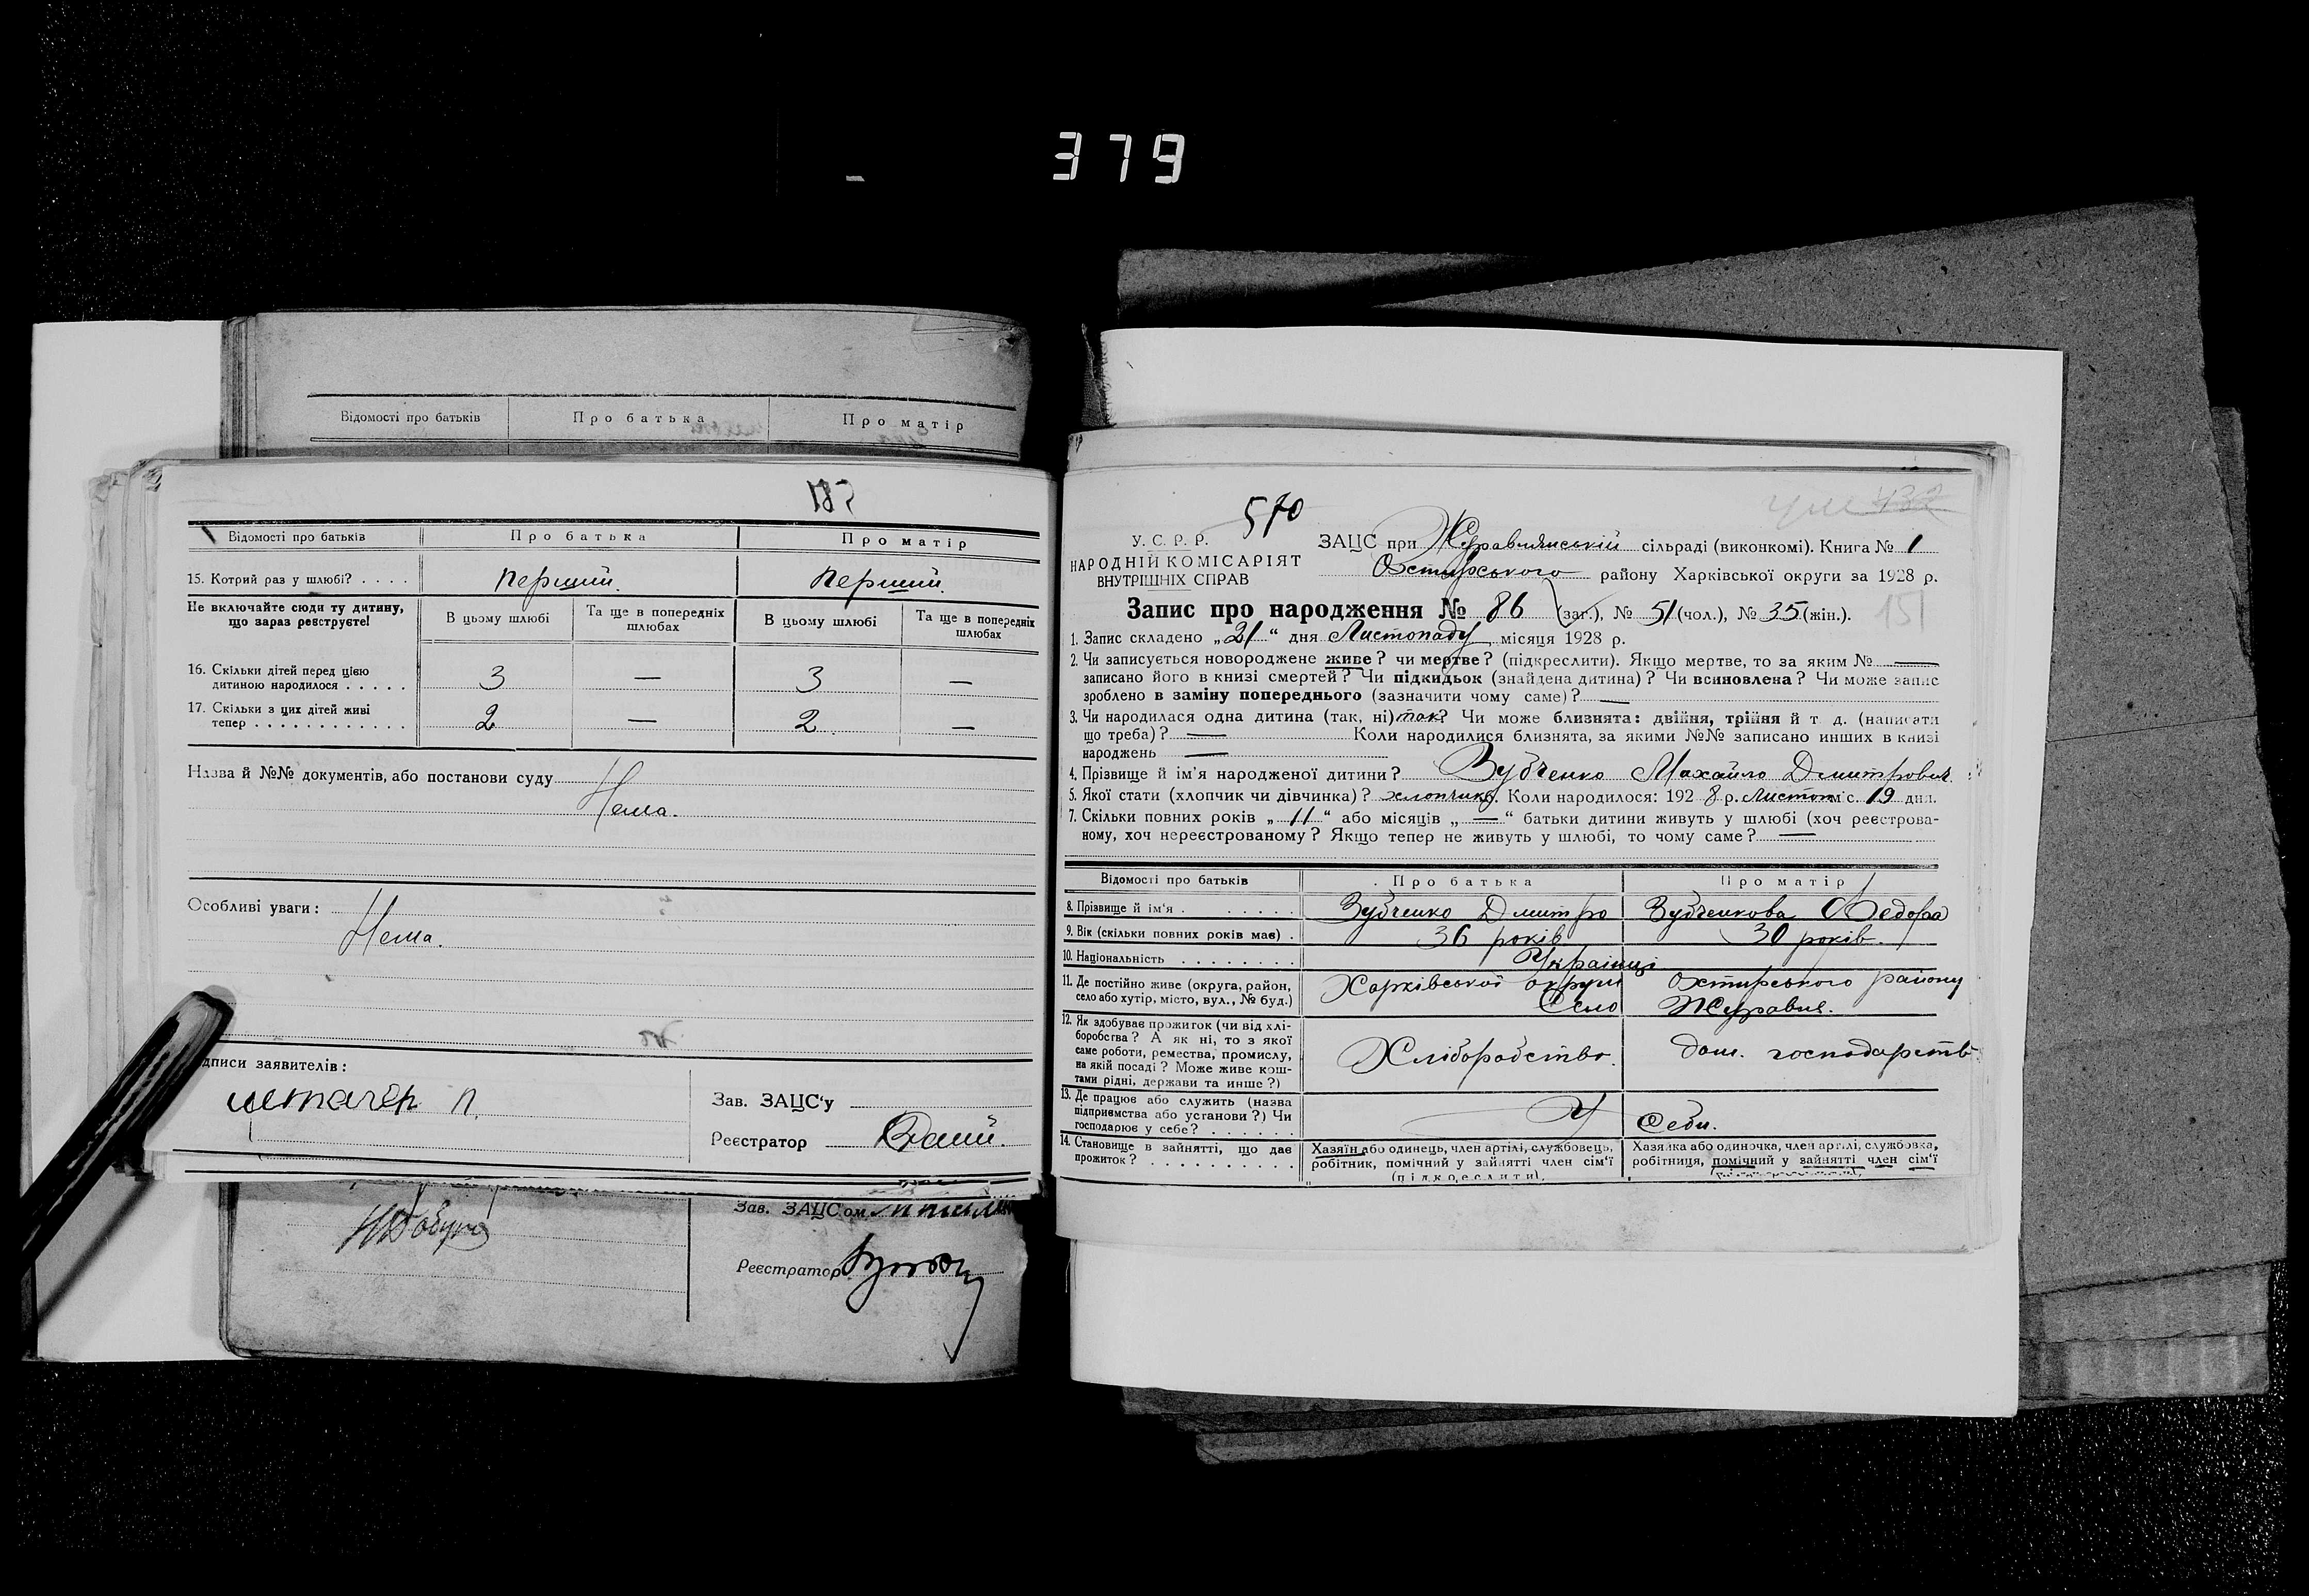 379
Відомості про батьків Про батька Про матір
581
Відомості про батьків Про батька Про матір
15. Котрий раз у шлюбі? . . . . Перший. Перший.
Не включайте сюди ту дитину, що зараз реєструєте!
В цьому шлюбі Та ще в попередніх шлюбах В цьому шлюбі Та ще в попередніх шлюбах
16. Скільки дітей перед цією
дитиною народилося . . . . . 3 — 3 —
17. Скільки з цих дітей живі
тепер . . . . . . . . . . . . 2 — 2 —
Назва й №№ документів, або постанови суду
Нема.
Особливі уваги:
Нема.
дписи заявителів:
Зав. ЗАЦС'у
Реєстратор
Зав. ЗАЦСом
Реєстратор
570
432
У. С. Р. Р.
НАРОДНІЙ КОМІСАРІЯТ
ВНУТРІШНІХ СПРАВ
ЗАЦС при Журавлянській сільраді (виконкомі). Книга № 1
Охтирського району Харківської округи за 1928 р.
Запис про народження № 86 (заг.), № 51 (чол.), № 35 (жін.). 151
1. Запис складено „21" дня Листопаду місяця 1928 р.
2. Чи записується новороджене живе? чи мертве? (підкреслити). Якщо мертве, то за яким № —
записано його в книзі смертей? Чи підкидьок (знайдена дитина)? Чи всиновлена? Чи може запис
зроблено в заміну попереднього (зазначити чому саме)? —
3. Чи народилася одна дитина (так, ні) так? Чи може близнята: двійня, трійня й т. д. (написати
що треба)? — Коли народилися близнята, за якими №№ записано инших в книзі
народжень —
4. Прізвище й ім'я народженої дитини? Зубченко Махайло Дмитрович
5. Якої стати (хлопчик чи дівчинка)? хлопчик. Коли народилося: 1928 р. Листоп міс. 19 дня.
7. Скільки повних років „11" або місяців „—" батьки дитини живуть у шлюбі (хоч реєстрова-
ному, хоч нереєстрованому? Якщо тепер не живуть у шлюбі, то чому саме? —
Відомості про батьків Про батька Про матір
8. Прізвище й ім'я . . . . . . Зубченко Дмитро Зубченкова Федора
9. Вік (скільки повних років має) . 36 років 30 років.
10. Національність . . . . . . . . Українці
11. Де постійно живе (округа, район,
село або хутір, місто, вул., № буд.) Харківської округи Охтирського району
Село Журавля.
12. Як здобуває прожиток (чи від хлі-
боробства? А як ні, то з якої
саме роботи, ремества, промислу,
на якій посаді? Може живе кош-
тами рідні, держави та инше?) Хліборобство. дом. господарств
13. Де працює або служить (назва
підприємства або установи?) Чи
господарює у себе? . . . . . . У Себи.
14. Становище в зайнятті, що дає
прожиток? . . . . . . . . . .
Хазяїн або одинець, член артілі, службовець,
робітник, помічний у зайнятті член сім'ї
(підкреслити).
Хазяйка або одиночка, член артілі, службовка,
робітниця, помічний у зайнятті член сім'ї